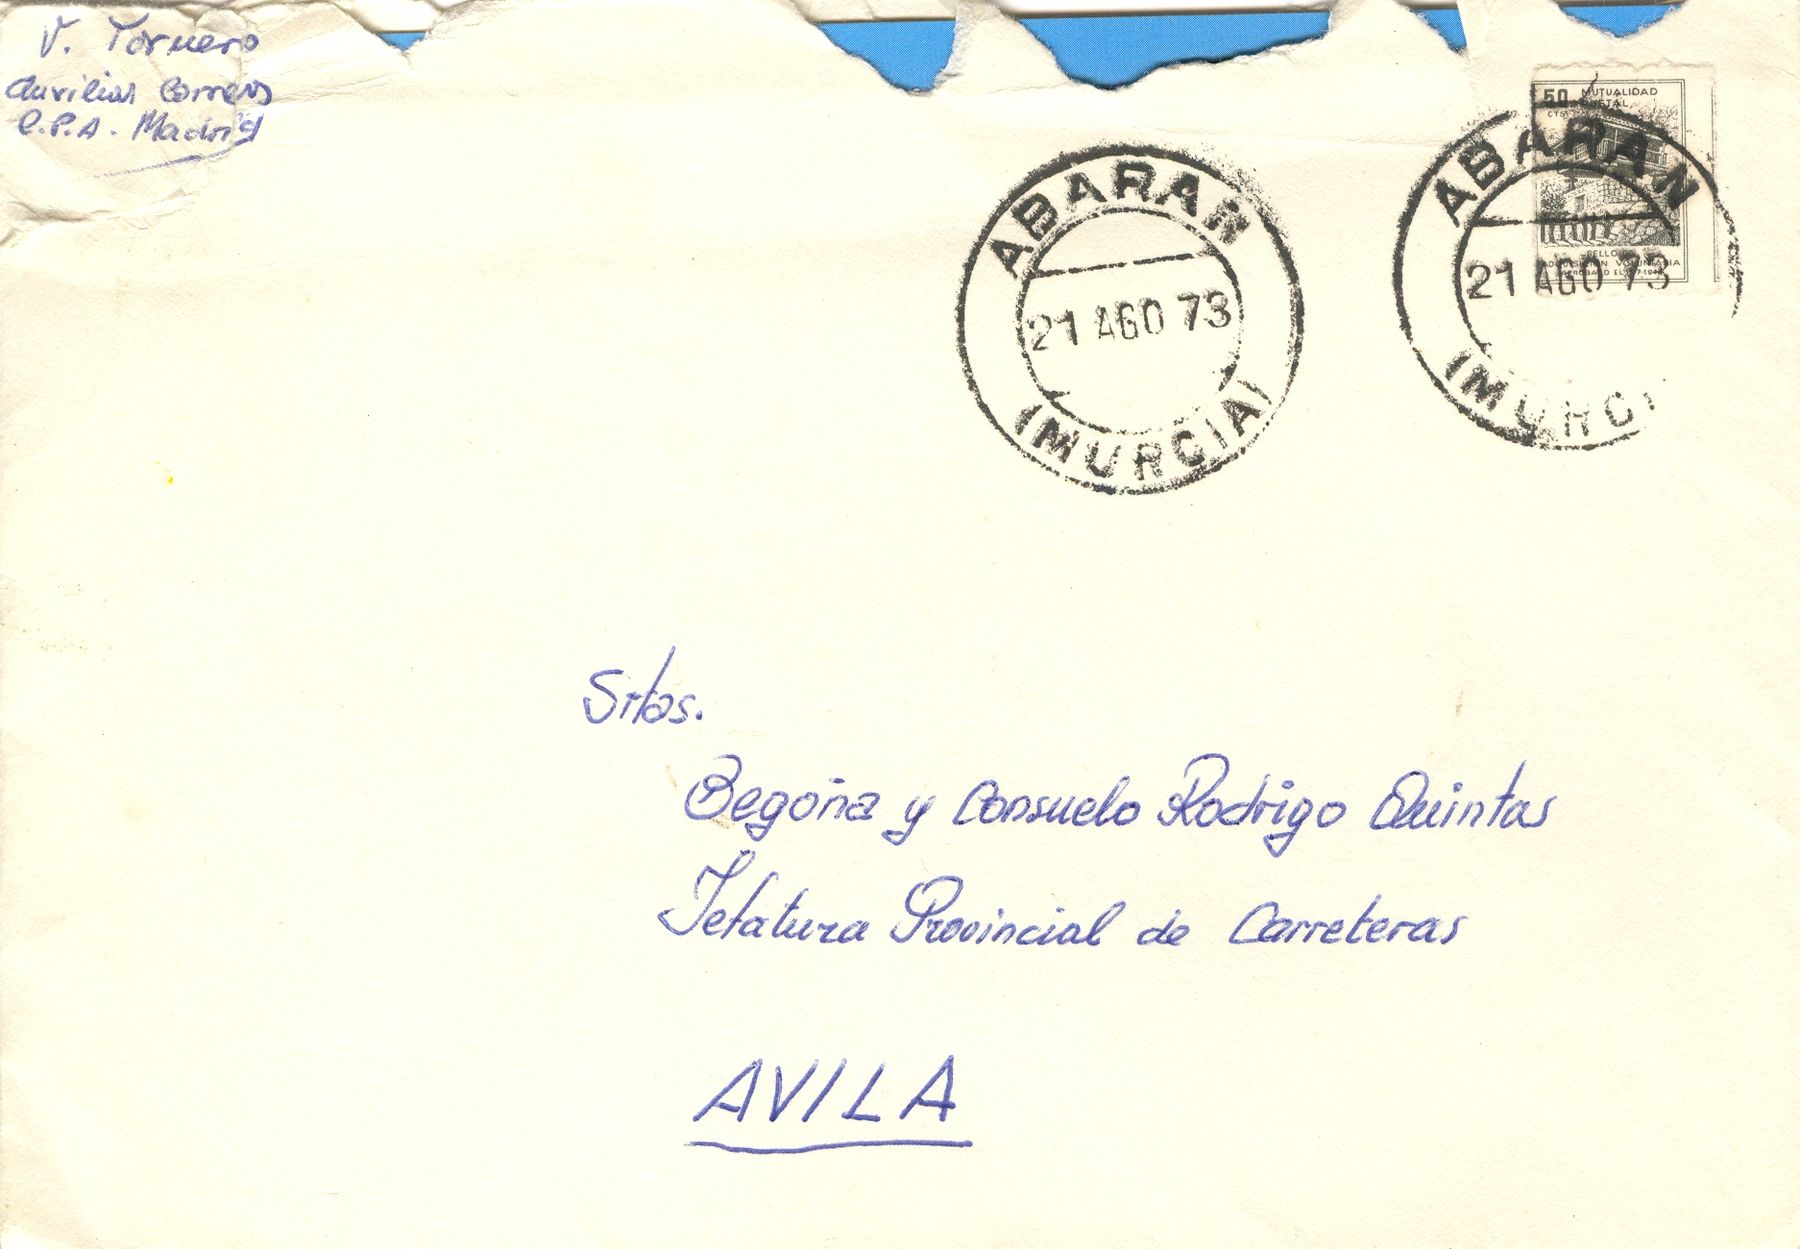 V. Tornero
Auxiliar Correos
C.P.A. Madrid
ABARAN
21 AGO 73
(MURCIA)
ABARAN
21 AGO 73
(MURCI
50 MUTUALIDAD
CTS POSTAL
SELLO
ADQUISICION VOLUNTARIA
APROBADO EL
Srtas.
Begoña y Consuelo Rodrigo Quintas
Jefatura Provincial de Carreteras
AVILA